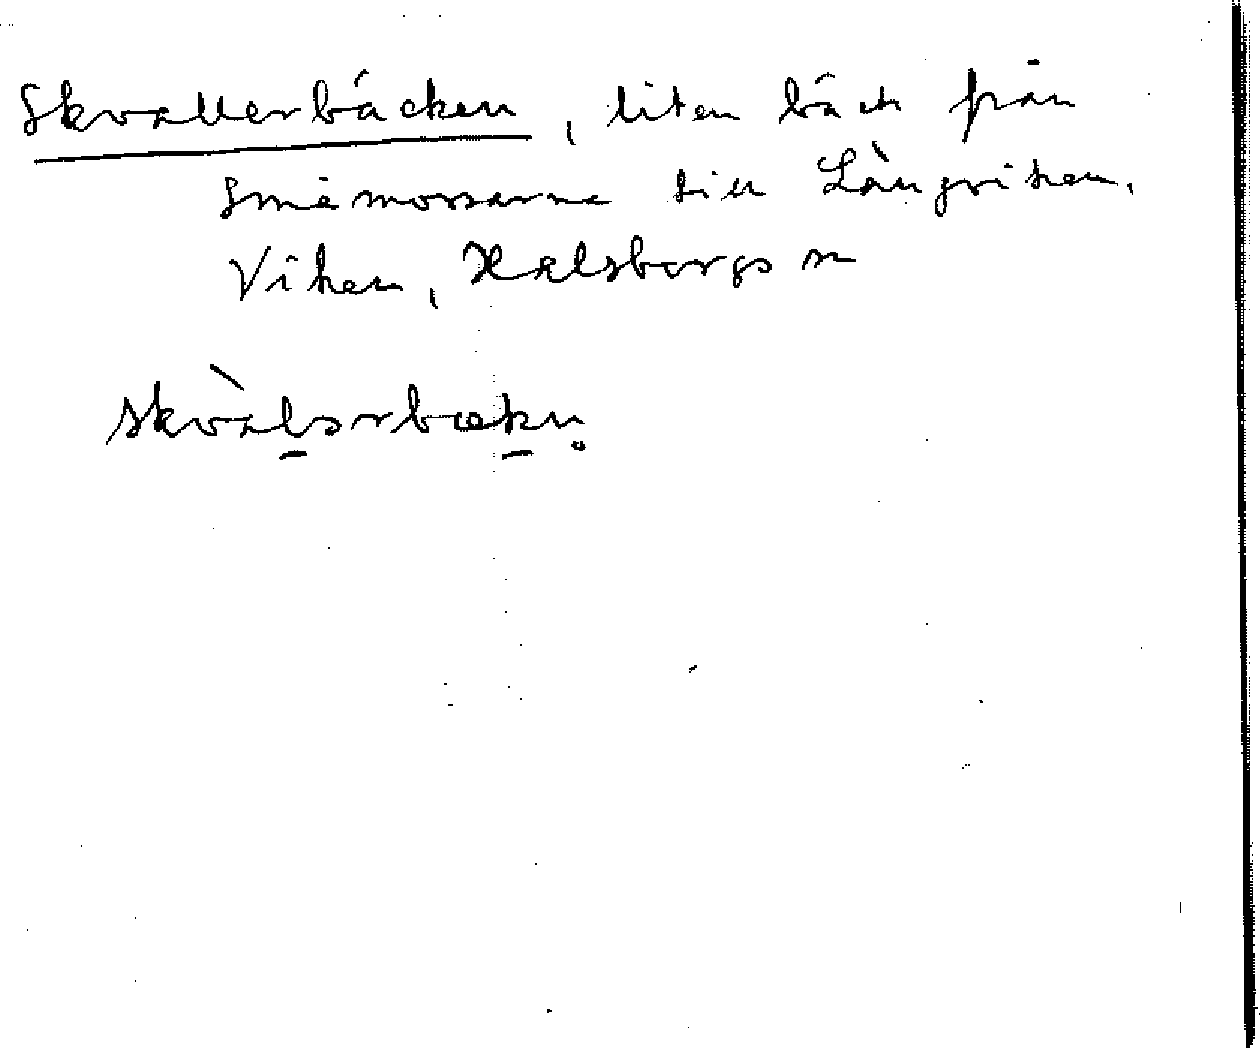 Skvallerbäcken, liten bäck från
Småmossarna till Långviken.
Viken, Halsbergs sn
skvàlərbækn̥